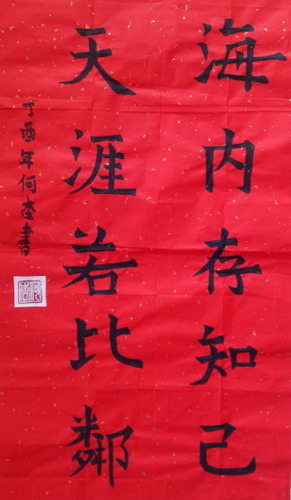 海内存知己
天涯若比鄰
丁酉年何奎書